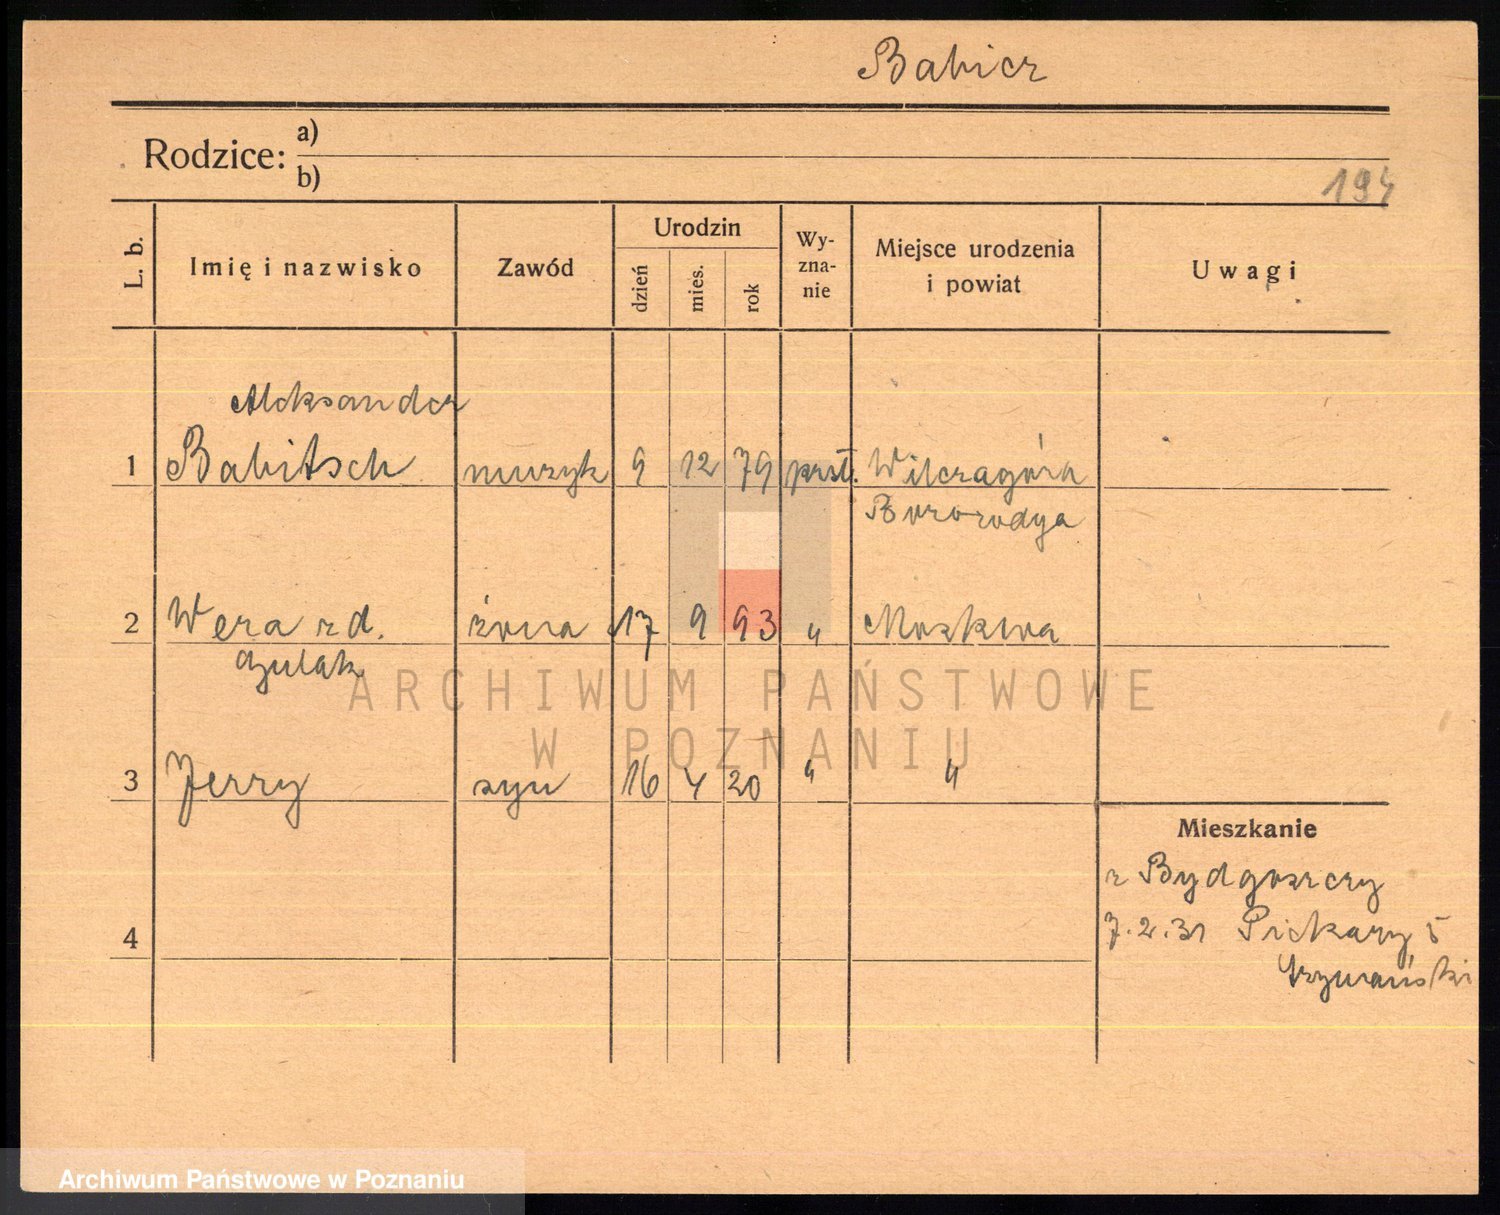 Babicz
Rodzice: a)
b)
194
L. b. Imię i nazwisko Zawód Urodzin dzień mies. rok Wy-zna-nie Miejsce urodzenia i powiat Uwagi
Aleksander
1 Babitsch muzyk 9 12 79 prst. Wilczagóra
2 Wera zd. żona 17 9 93 " Moskwa
3 Jerry syn 16 4 20 " "
Mieszkanie
z Bydgoszczy
4 7.2.31 Piekary 5
ARCHIWUM PAŃSTWOWE
W POZNANIU
Archiwum Państwowe w Poznaniu